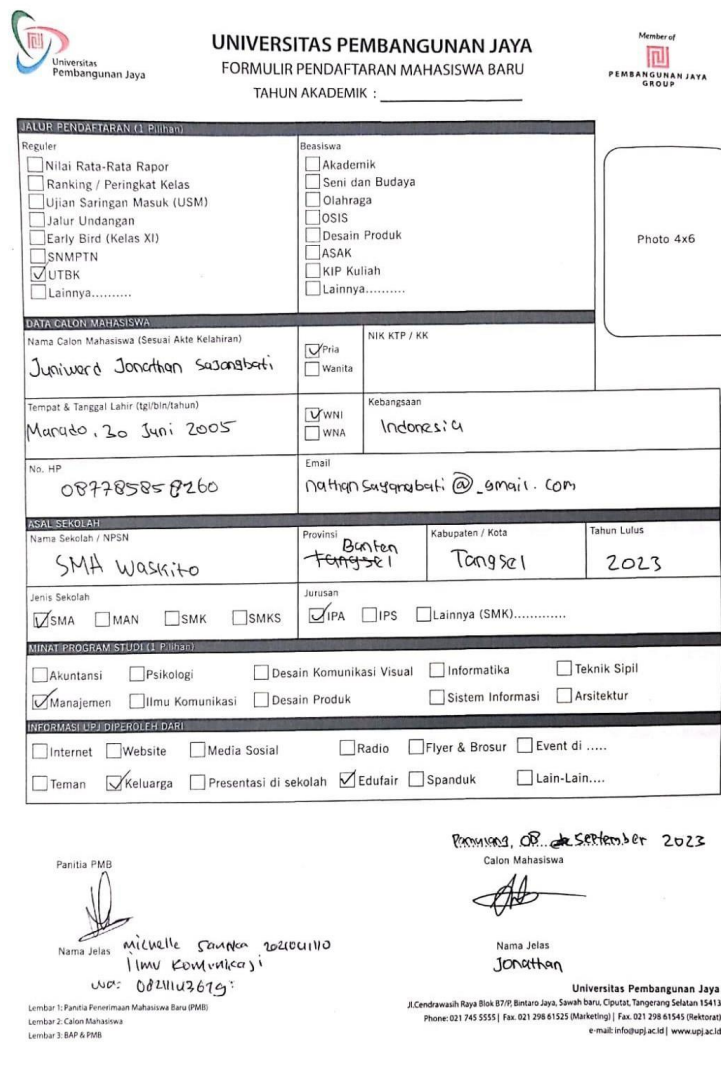 Universitas
Pembangunan Jaya
UNIVERSITAS PEMBANGUNAN JAYA
FORMULIR PENDAFTARAN MAHASISWA BARU
TAHUN AKADEMIK :
Member of
PEMBANGUNAN JAYA
GROUP
JALUR PENDAFTARAN (1 Pilihan)
Reguler
Nilai Rata-Rata Rapor
Ranking / Peringkat Kelas
Ujian Saringan Masuk (USM)
Jalur Undangan
Early Bird (Kelas XI)
SNMPTN
UTBK
Lainnya..........
Beasiswa
Akademik
Seni dan Budaya
Olahraga
OSIS
Desain Produk
ASAK
KIP Kuliah
Lainnya..........
Photo 4x6
DATA CALON MAHASISWA
Nama Calon Mahasiswa (Sesuai Akte Kelahiran)
Juniward Jonathan Sajangbati
Pria
Wanita
NIK KTP / KK
Tempat & Tanggal Lahir (tgl/bln/tahun)
Manado, 30 Juni 2005
WNI
WNA
Kebangsaan
Indonesia
No. HP
087785858260
Email
nathansayangbati@_gmail.com
ASAL SEKOLAH
Nama Sekolah / NPSN
SMA Waskito
Provinsi
Banten
Tangsel
Kabupaten / Kota
Tangsel
Tahun Lulus
2023
Jenis Sekolah
SMA MAN SMK SMKS
Jurusan
IPA IPS Lainnya (SMK).............
MINAT PROGRAM STUDI (1 Pilihan)
Akuntansi Psikologi Desain Komunikasi Visual Informatika Teknik Sipil
Manajemen Ilmu Komunikasi Desain Produk Sistem Informasi Arsitektur
INFORMASI UPJ DIPEROLEH DARI
Internet Website Media Sosial Radio Flyer & Brosur Event di .....
Teman Keluarga Presentasi di sekolah Edufair Spanduk Lain-Lain....
Pamulang, 08 September 2023
Panitia PMB
Calon Mahasiswa
Nama Jelas michelle
Ilmu Komunikasi
wa:
Nama Jelas
Jonathan
Lembar 1: Panitia Penerimaan Mahasiswa Baru (PMB)
Lembar 2: Calon Mahasiswa
Lembar 3: BAP & PMB
Universitas Pembangunan Jaya
Jl.Cendrawasih Raya Blok B7/P, Bintaro Jaya, Sawah baru, Ciputat, Tangerang Selatan 15413
Phone: 021 745 5555 | Fax. 021 298 61525 (Marketing) | Fax. 021 298 61545 (Rektorat)
e-mail: info@upj.ac.id | www.upj.ac.id